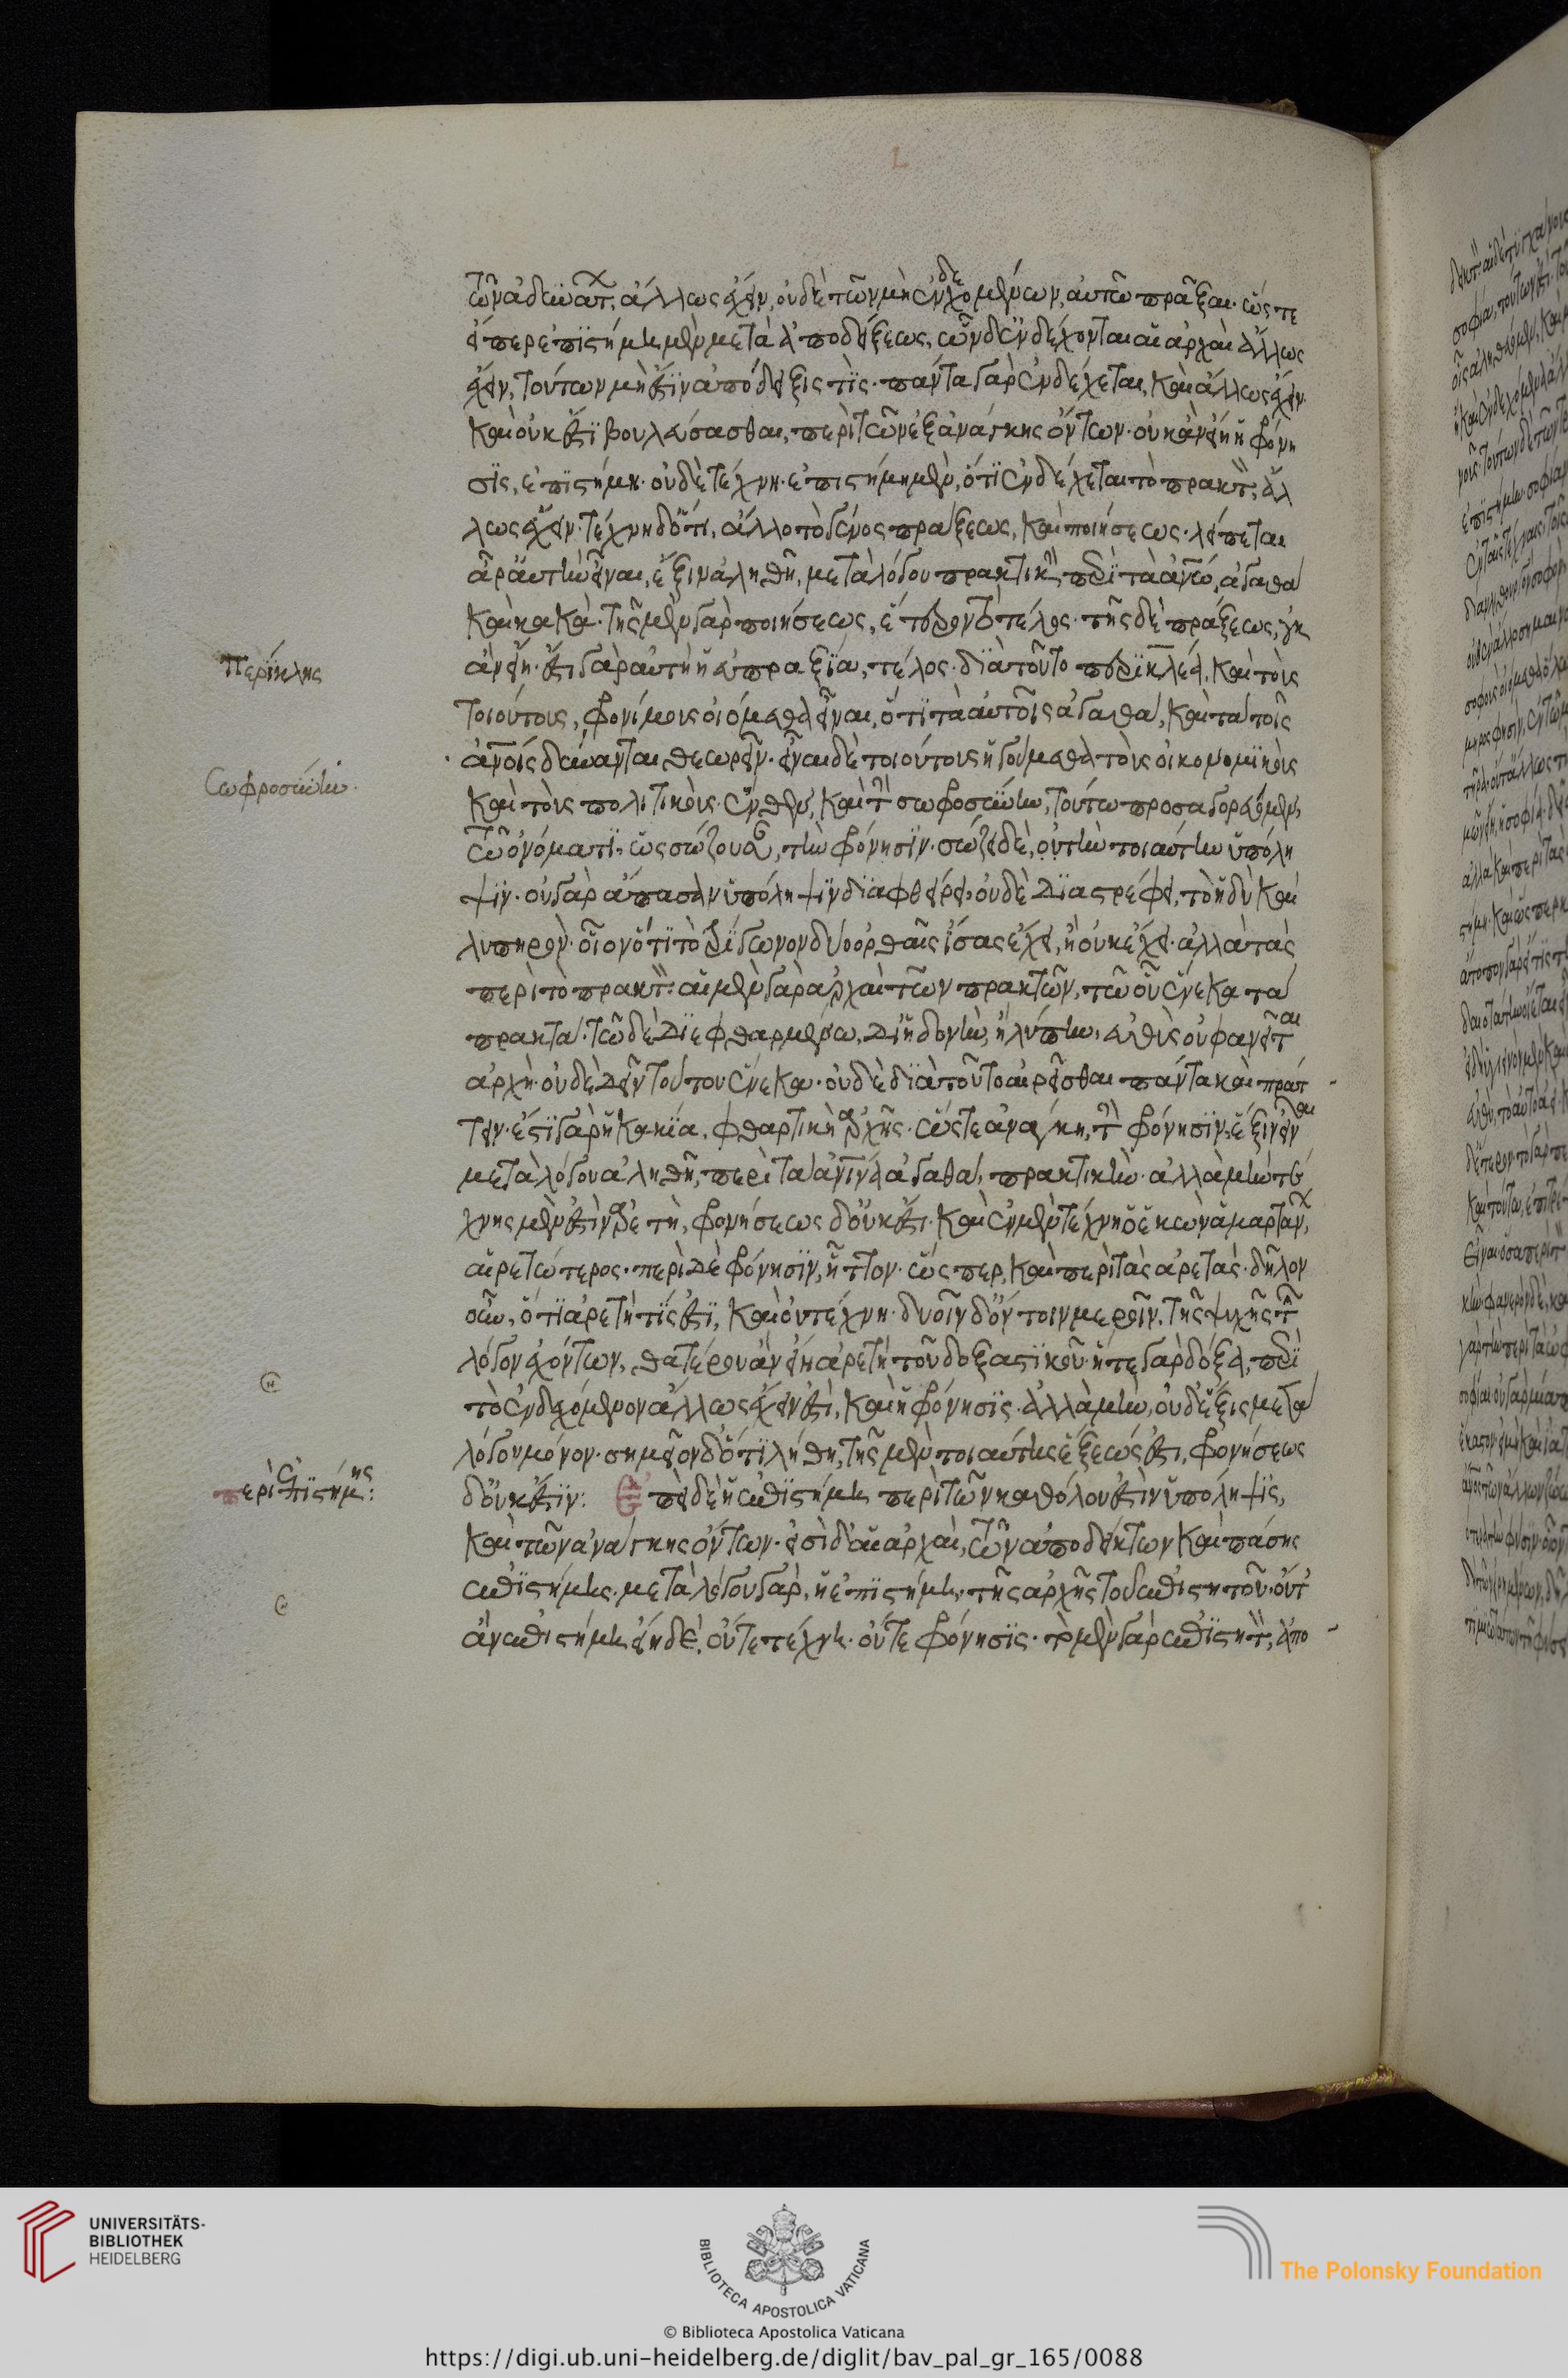 τῶν ἀδυνάτων ἄλλως ἔχειν, οὐδὲ τῶν μὴ ἐνδεχομένων, αὐτῷ πρᾶξαι. ὥστε
εἴπερ ἐπιστήμη μὲν μετὰ ἀποδείξεως, ὧν δ' ἐνδέχονται αἱ ἀρχαὶ ἄλλως
ἔχειν, τούτων μή ἐστιν ἀπόδειξις τίς· πάντα γὰρ ἐνδέχεται, καὶ ἄλλως ἔχειν.
καὶ οὐκ ἔστι βουλεύσασθαι, περὶ τῶν ἐξ ἀνάγκης ὄντων· οὐκ ἂν εἴη ἡ φρόνη
σις, ἐπιστήμη· οὐδὲ τέχνη· ἐπιστήμη μὲν, ὅτι ἐνδέχεται τὸ πρακτὸν, ἄλ
λως ἔχειν· τέχνη δ' ὅτι, ἄλλο τὸ γένος πράξεως, καὶ ποιήσεως· λείπεται
ἄρα αὐτὴν εἶναι, ἕξιν ἀληθῆ, μετὰ λόγου πρακτικὴν, περὶ τὰ ἀνθρώπω, ἀγαθὰ
καὶ κακά· τῆς μὲν γὰρ ποιήσεως, ἕτερον τὸ τέλος· τῆς δὲ πράξεως, οὐκ
ἂν εἴη· ἔστι γὰρ αὐτὴ ἡ εὐπραξία, τέλος· διὰ τοῦτο περικλέα, καὶ τοὺς
τοιούτους, φρονίμους οἰόμεθα εἶναι, ὅτι τὰ αὑτοῖς ἀγαθὰ, καὶ τὰ τοῖς
ἀνθρώποις δύνανται θεωρεῖν· εἶναι δὲ τοιούτους ἡγούμεθα τοὺς οἰκονομικοὺς
καὶ τοὺς πολιτικούς· ἔνθεν, καὶ τὴν σωφροσύνην, τούτω προσαγορεύομεν,
τῶ ὀνόματι, ὡς σώζουσαν, τὴν φρόνησιν· σώζει δὲ, οὐ τὴν τοιαύτην ὑπόλη
ψιν· οὐ γὰρ ἅπασαν ὑπόληψιν διαφθείρει, οὐδὲ διαστρέφει, τὸ ἡδὺ καὶ
λυπηρόν· οἷον ὅτι τὸ τρίγωνον δυσὶν ὀρθαῖς ἴσας ἔχει, ἢ οὐκ ἔχει· ἀλλὰ τὰς
περὶ τὸ πρακτόν· αἱ μὲν γὰρ ἀρχαὶ τῶν πρακτῶν, τὸ οὗ ἕνεκα τὰ
πρακτά· τῶ δὲ διεφθαρμένω, δι' ἡδονὴν, ἢ λύπην, εὐθὺς οὐ φαίνεται
ἀρχὴ· οὐδὲ δεῖν τούτου ἕνεκα· οὐδὲ διὰ τοῦτο αἱρεῖσθαι πάντα καὶ πράτ
τειν· ἔστι γὰρ ἡ κακία, φθαρτικὴ ἀρχῆς· ὥστε ἀνάγκη, τὴν φρόνησιν, ἕξιν εἶναι
μετὰ λόγου ἀληθῆ, περὶ τὰ ἀνθρώπινα ἀγαθὰ, πρακτικὴν· ἀλλὰ μὴν τέ
χνης μὲν ἐστὶν ἀρετὴ, φρονήσεως δ' οὐκ ἔστι· καὶ ἐν μὲν τέχνη ὁ ἑκὼν ἁμαρτάνων,
αἱρετώτερος· περὶ δὲ φρόνησιν, ἧττον· ὥσπερ, καὶ περὶ τὰς ἀρετάς· δῆλον
οὖν, ὅτι ἀρετή τίς ἐστι, καὶ οὐ τέχνη· δυοῖν δ' ὄντοιν μεροῖν, τῆς ψυχῆς τῶν
λόγον ἐχόντων, θατέρου ἂν εἴη ἀρετὴ τοῦ δοξαστικοῦ· ἥ τε γὰρ δόξα, περὶ
τὸ ἐνδεχόμενον ἄλλως ἔχειν ἐστὶ, καὶ ἡ φρόνησις· ἀλλὰ μὴν, οὐδ' ἕξις μετὰ
λόγου μόνον· σημεῖον δ' ὅτι λήθη, τῆς μὲν τοιαύτης ἕξεώς ἐστι, φρονήσεως
δ' οὐκ ἔστιν: Ἐπεὶ δὲ ἡ ἐπιστήμη περὶ τῶν καθόλου ἐστὶν ὑπόληψις,
καὶ τῶν ἀνάγκης ὄντων· εἰσὶ δ' αἱ ἀρχαὶ, τῶν ἀποδεικτῶν καὶ πάσης
ἐπιστήμης· μετὰ λόγου γὰρ, ἡ ἐπιστήμη, τῆς ἀρχῆς τοῦ ἐπιστητοῦ· οὔτ'
ἂν ἐπιστήμη εἴη δὲ, οὔτε τέχνη· οὔτε φρόνησις· τὸ μὲν γὰρ ἐπιστητὸν, ἀπο
Περίκλης
Σωφροσύνην.
περὶ ἐπιστήμης:
UNIVERSITÄTS-
BIBLIOTHEK
HEIDELBERG
BIBLIOTECA APOSTOLICA VATICANA
© Biblioteca Apostolica Vaticana
The Polonsky Foundation
https://digi.ub.uni-heidelberg.de/diglit/bav_pal_gr_165/0088